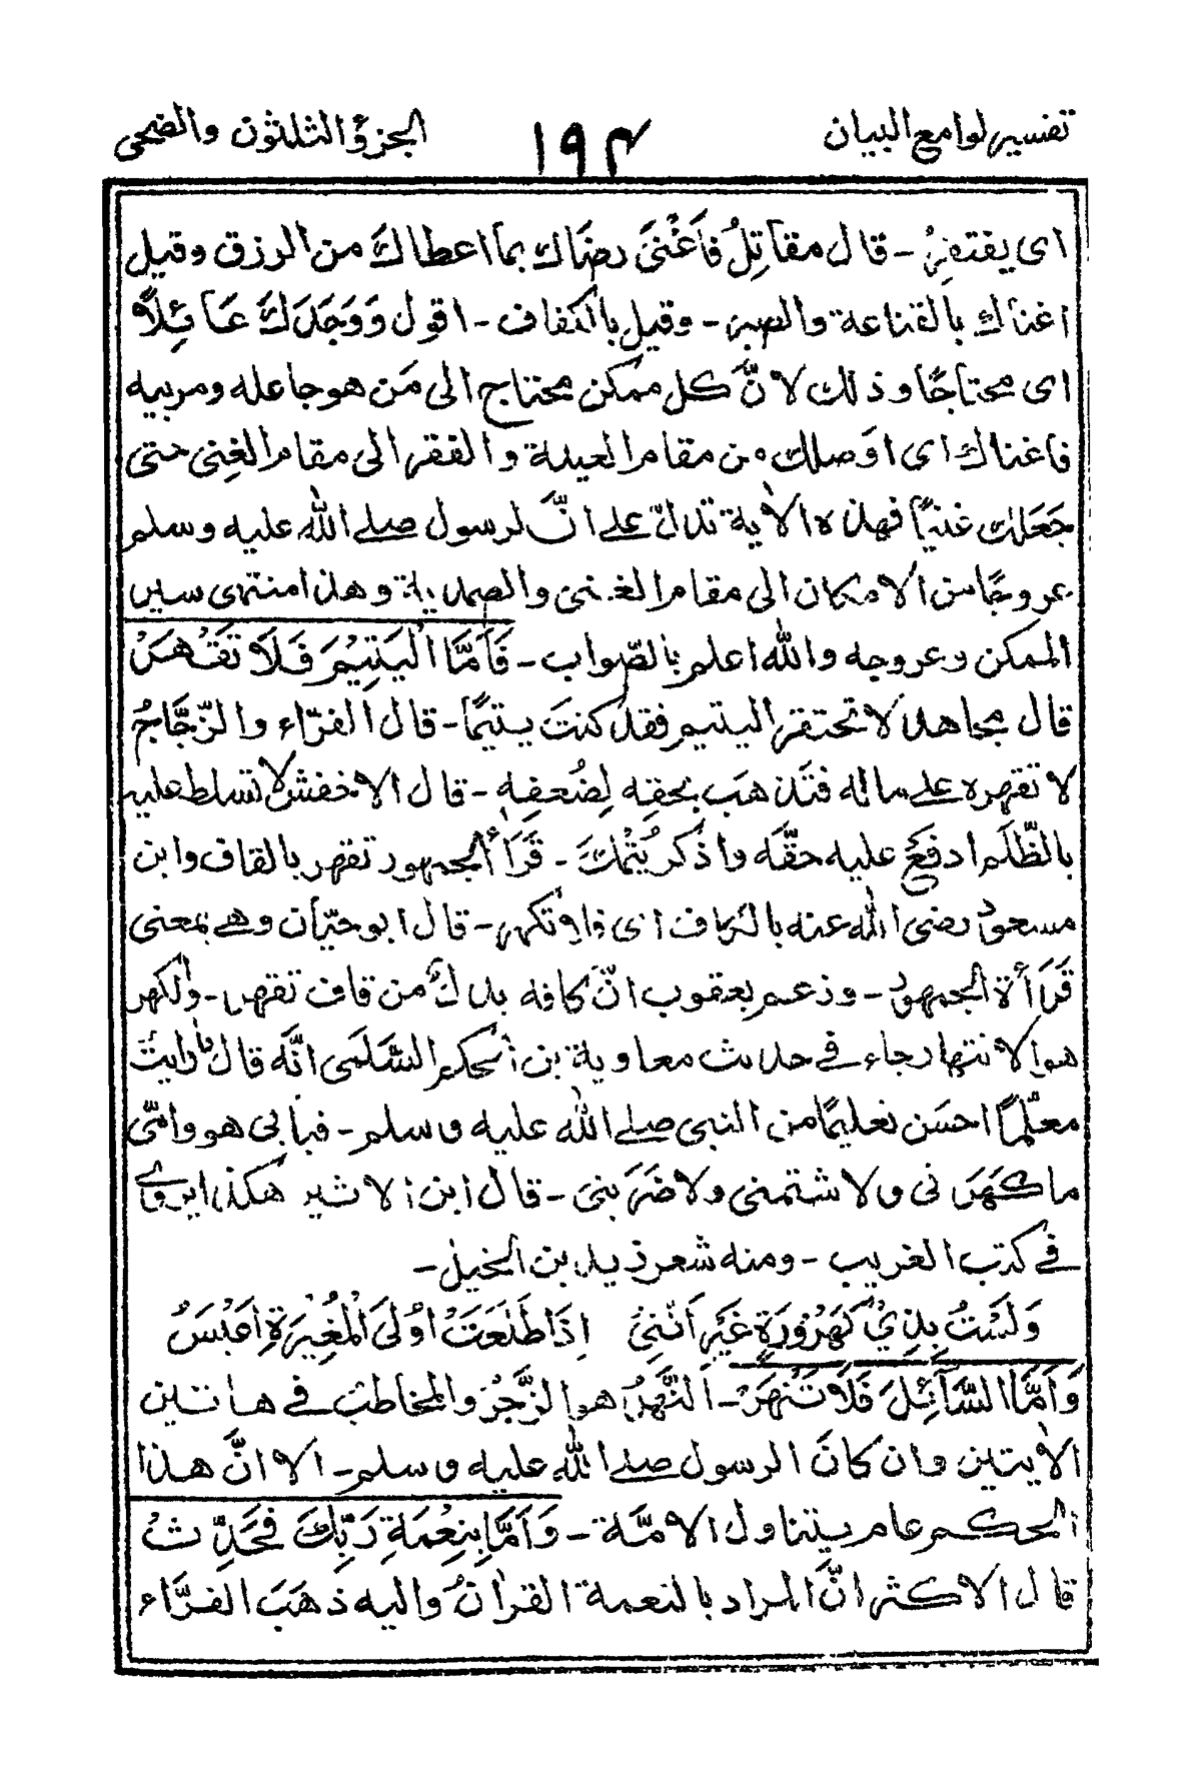 تفسير لوامع البيان ١٩٤ الجزؤ الثلثون والضحى
اى يفتقرُ - قال مقاتِلُ فَاَغْنىَ رضَاك بما اعطاكَ من الرزق وقيل
اغناك بالقناعة والصبر - وقيل بالكفاف - اقول وَوَجَدَكَ عَائِلاً
اى محتاجًا وذلك لانَّ كل ممكن محتاج الى مَن هو جاعله ومربيه
فاغناك اى اوصلك من مقام العيلة والفقر الى مقام الغِنى حتى
جَعَلك غنيًا فهذه الأية تدلّ على انّ لرسول صلے الله عليه وسلم
عروجًا من الامكان الى مقام الغنى والصمدية وهذا منتهى سير
الممكن وعروجه والله اعلم بالصّواب - فَاَمَّا الْيَتِيْمَ فَلَا تَقْهَرْ
قال مجاهد لا تحتقر اليتيم فقد كنتَ يتيمًا - قال الفرّاء والزّجَّاجُ
لا تقهره على ماله فتذهبَ بحقِه لِضُعفِه - قال الاخفش لا تسلط عليه
بالظّلم ادفَع عليه حقّه واذكر يُتْمكَ - قَرَأ الجمهور تقهر بالقاف وابن
مسعود رضى الله عنه بالكاف اى فلا تكهر - قال ابو حيّان وهے بمعنى
قَرَأة الجمهور - وزعم يعقوب انّ كافه بدلٌ من قاف تقهر - والكهر
هو الانتهار جاء فے حديث معاوية بن الحكم السَّلَمى انّه قال ما رايتَ
معلّمًا احسَن تعليمًا من النبى صلے الله عليه وسلم - فبأبى هو وامّى
ما كَهَرَ نى ولا شتمنى ولا ضَرَبنى - قال ابن الاثير هكذا يروى
فے كتب الغريب - ومنه شعر زيد بن الخيل -
وَلَسْتُ بِذِيْ كَهَرُوْرَةٍ غَيْرَ اَنَّنِيْ اِذَا طَلَعَتْ اُوْلىَ الْمُغِيْرَةِ اَعْبَسُ
وَاَمَّا السَّآئِلَ فَلَا تَنْهَرْ - اَلنَّهْرُ هو الزَّجْرُ والمخاطب فے هاتين
الأيتين وان كانَ الرسول صلے الله عليه وسلم - الا انَّ هذا
الحكم عام يتناول الامّة - وَاَمَّا بِنِعْمَةِ رَبِّكَ فَحَدِّثْ
قال الاكثر انّ المراد بالنعمة القرأن واليه ذهَبَ الفرَّاء